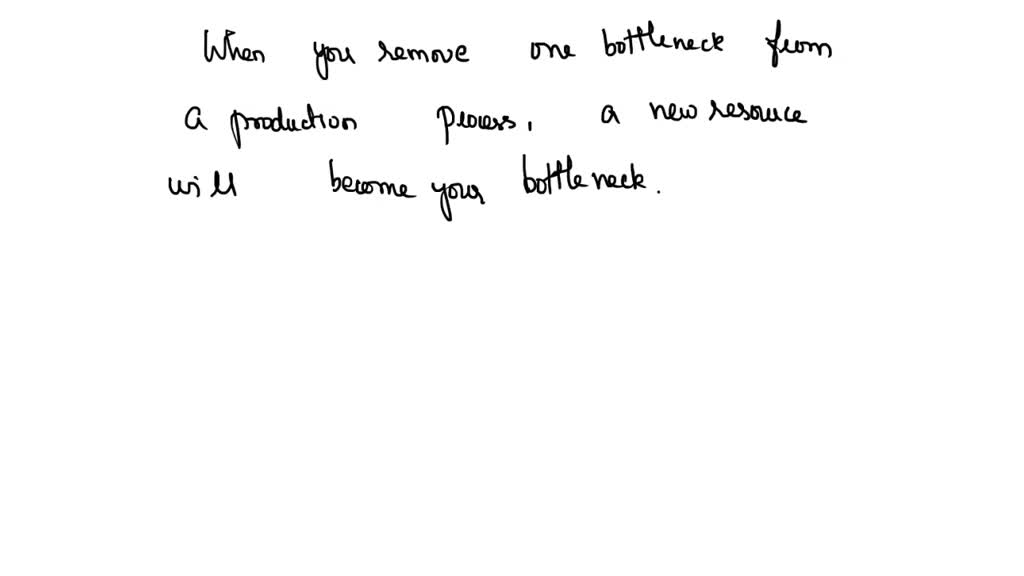 When you remove one bottleneck from
a production process, a new resource
will become your bottleneck.